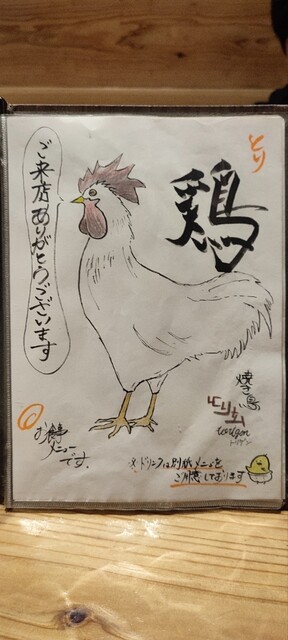 とり
鶏
ご来店ありがとうございます
焼き鳥
torigen
トリゲン
お鶏
メニュー
です。
※ドリンクは別紙メニューを
ご用意しております